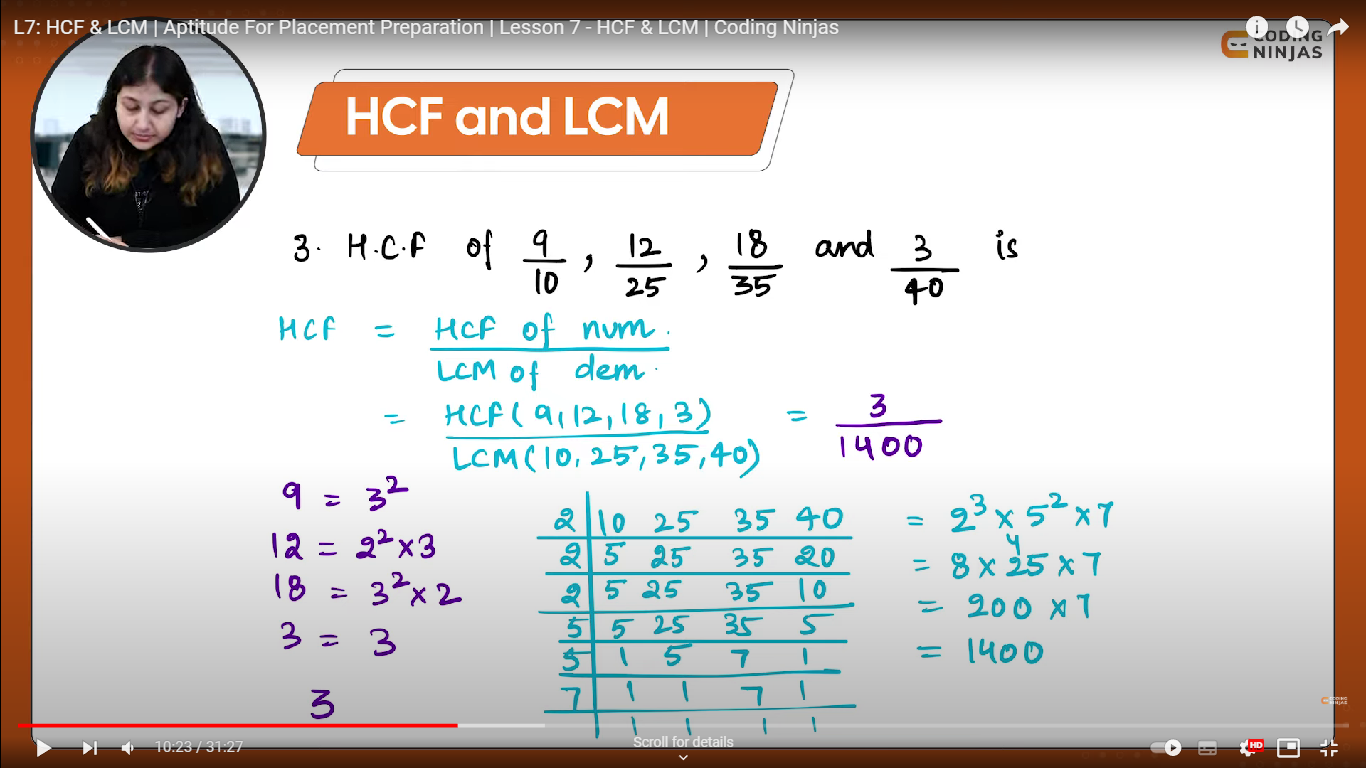 L7: HCF & LCM | Aptitude For Placement Preparation | Lesson 7 - HCF & LCM | Coding Ninjas
CODING
NINJAS
HCF and LCM
3. H.C.F of 9/10, 12/25, 18/35 and 3/40 is
HCF = HCF of num. / LCM of dem.
= HCF(9,12,18,3) / LCM(10,25,35,40) = 3/1400
9 = 3²
12 = 2²×3
18 = 3²×2
3 = 3
3
2 | 10 25 35 40
2 | 5 25 35 20
2 | 5 25 35 10
5 | 5 25 35 5
5 | 1 5 7 1
7 | 1 1 7 1
| 1 1 1 1
= 2³ × 5² × 7
4
= 8 × 25 × 7
= 200 × 7
= 1400
CODING
NINJAS
10:23 / 31:27
Scroll for details
HD